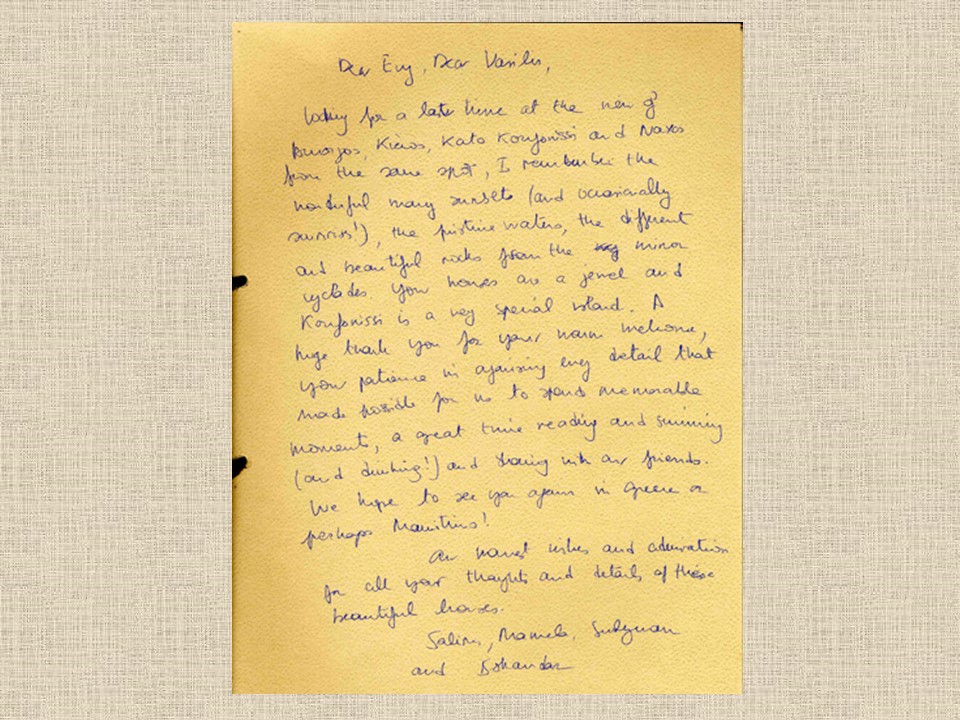 Dear Evy, Dear Vasilis,
looking for a last time at the view of
Amorgos, Kieros, Kato Koufonissi and Naxos
from the same spot, I remember the
wonderful many sunsets (and occasionally
sunrises!), the pristine waters, the different
and beautiful rocks from the minor
cyclades. Your houses are a jewel and
Koufonissi is a very special island. A
huge thank you for your warm welcome,
your patience in organising every detail that
made possible for us to spend memorable
moments, a great time reading and swimming
(and drinking!) and sharing with our friends.
We hope to see you again in Greece or
perhaps Mauritius!
Our warmest wishes and admiration
for all your thoughts and details of these
beautiful houses.
Salim, and
and Iskandar